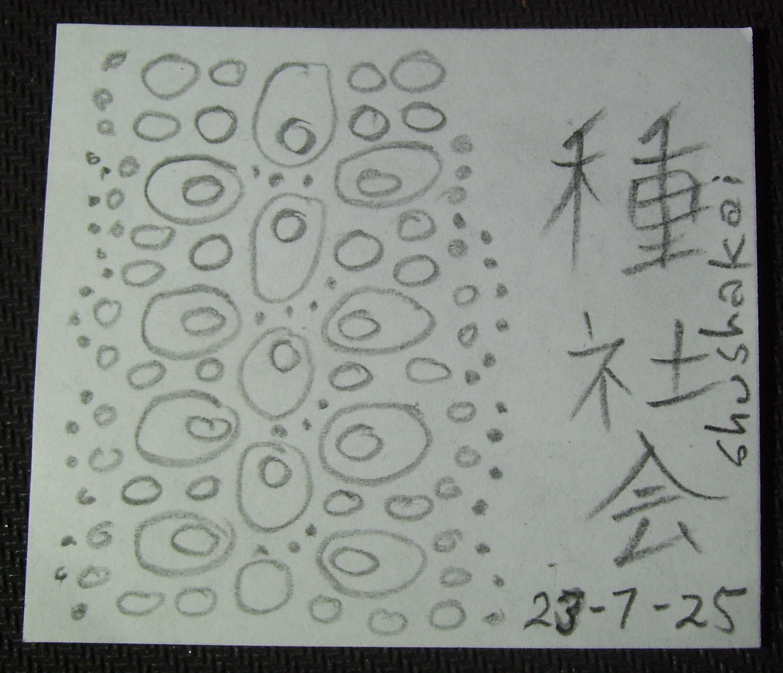 種社会
shushakai
23-7-25